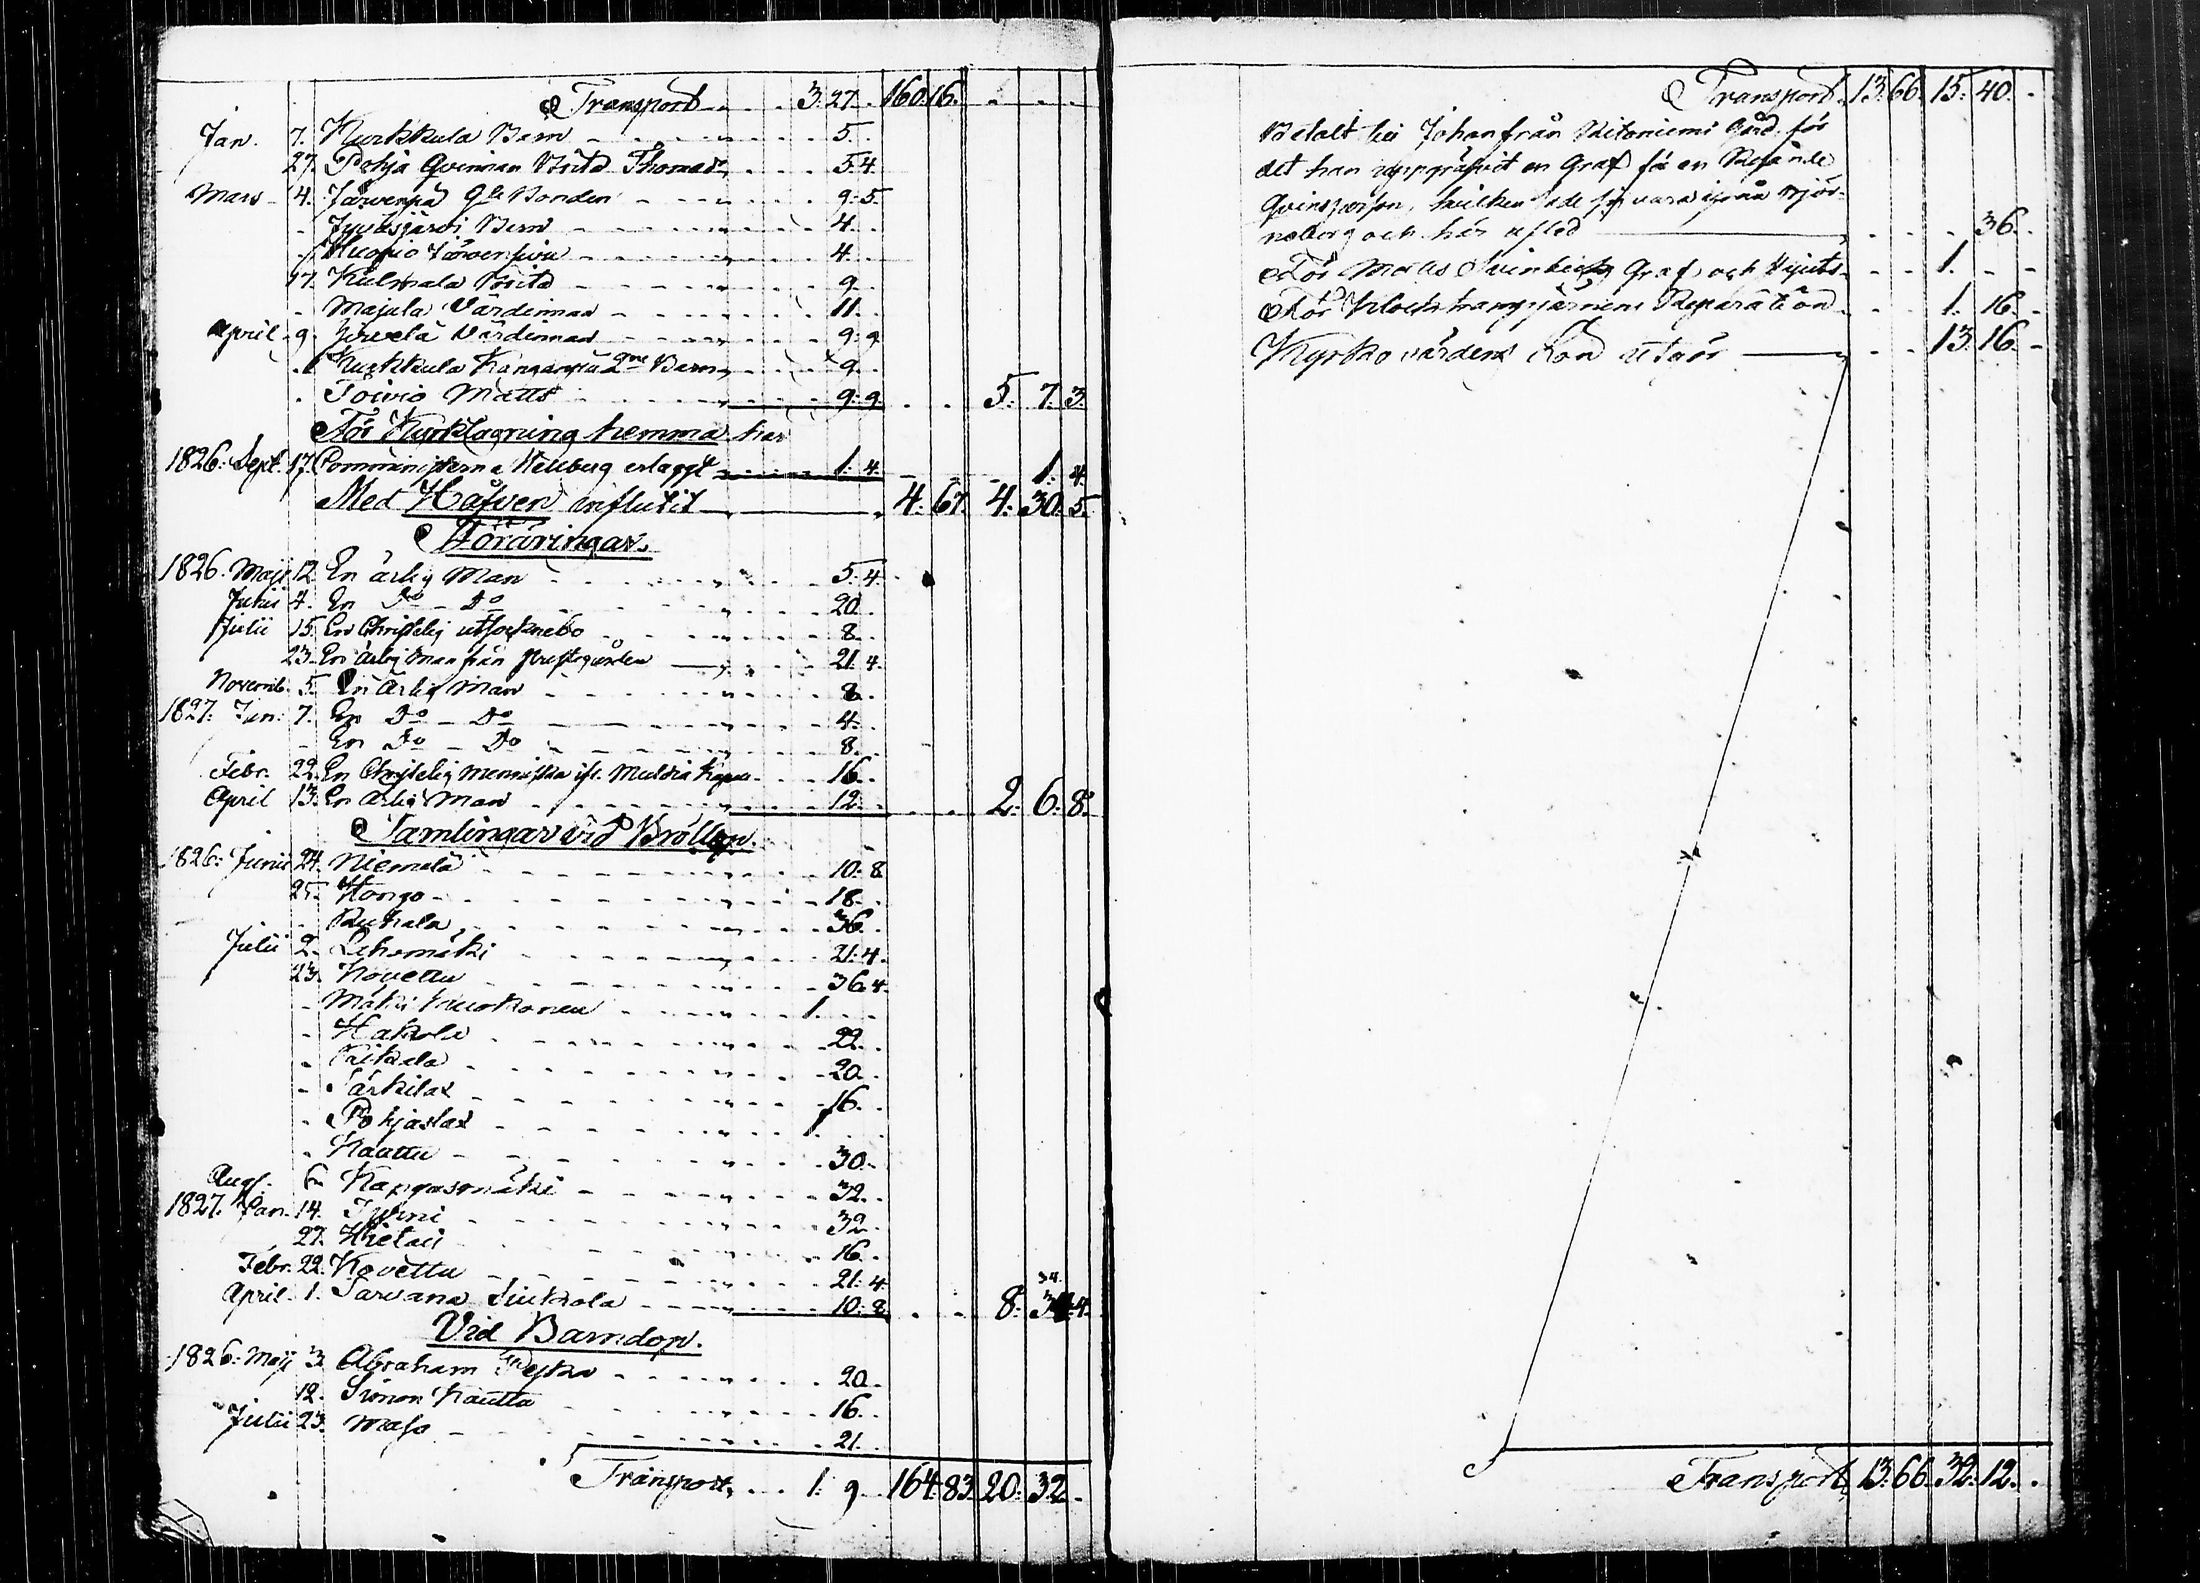 Transport 3. 27. 160. 16.
Jan. 7. Kurkkula Barn 5.
27. Pohja Qvinnan Brita Thomas 5. 4.
Mars 4. Järvenpä Gle Bonden 9. 5.
Jyväsjärvi Barn 4.
Kuopio Järvensivu 4.
17. Kulmala Brita 9.
Majula Värdinnan 11.
April 9. Järvelä Värdinnan 9. 9.
Kurkkula Kangaspä 2ne Barn 9.
Toivio Matts 9. 9. 5. 7. 3.
För Kyrktagning hemma har
1826. Sept. 17. Comministerna Wallberg erlaggt 1. 4. 1. 4.
Med Håfven influtit 4. 67. 4. 30. 5.
Föräringar.
1826. Maji 12. En ärlig Man 5. 4.
Junii 4. En Do Do 20.
Julii 15. En Christelig utsocknebo 8.
23. En ärlig Man från Prestgården 21. 4.
Novemb. 5. En ärlig Man 8.
1827. Jan. 7. En Do Do 4.
En Do Do 8.
Febr. 22. En Christelig Menniska i Muldia Kapell 16.
April 13. En ärlig Man 12. 2. 6. 8.
Samlingar vid Bröllop.
1826. Junii 24. Niemelä 10. 8.
25. Hongo 18.
Ruhala 36.
Julii 2. Lahomäki 21. 4.
23. Kovettu 36. 4.
Mäki Kuokanen 1.
Hakola 22.
20.
Särkilax 16.
Pohjaslax 1.
Kauttu 30.
Aug. 6. Kangasmäki 32.
1827. Jan. 14. Tyrni 32.
27. Hietaii 16.
Febr. 22. Kovettu 21. 4.
April 1. Sarvana Siukola 10. 8. 8. 34. 4.
Vid Barndop.
1826. Maji 3. Abraham 20.
12. Simon Kautta 16.
Julii 23. Maso 21.
Transport 1. 9. 164. 83. 20. 32.
Transport 13. 66. 15. 40.
Betalt till Johan från Ritoniemi Gård för
det han uppgräfvit en Graf för en Resande
Qvinsperson, hvilken sade sig vara ifrån Björ-
neborg och här afled 36.
För Matts Graf och 1.
För Klockstrangjärnens Reparation 1. 16.
Kyrkovärdens Lön utgör 13. 16.
Transport 13. 66. 32. 12.